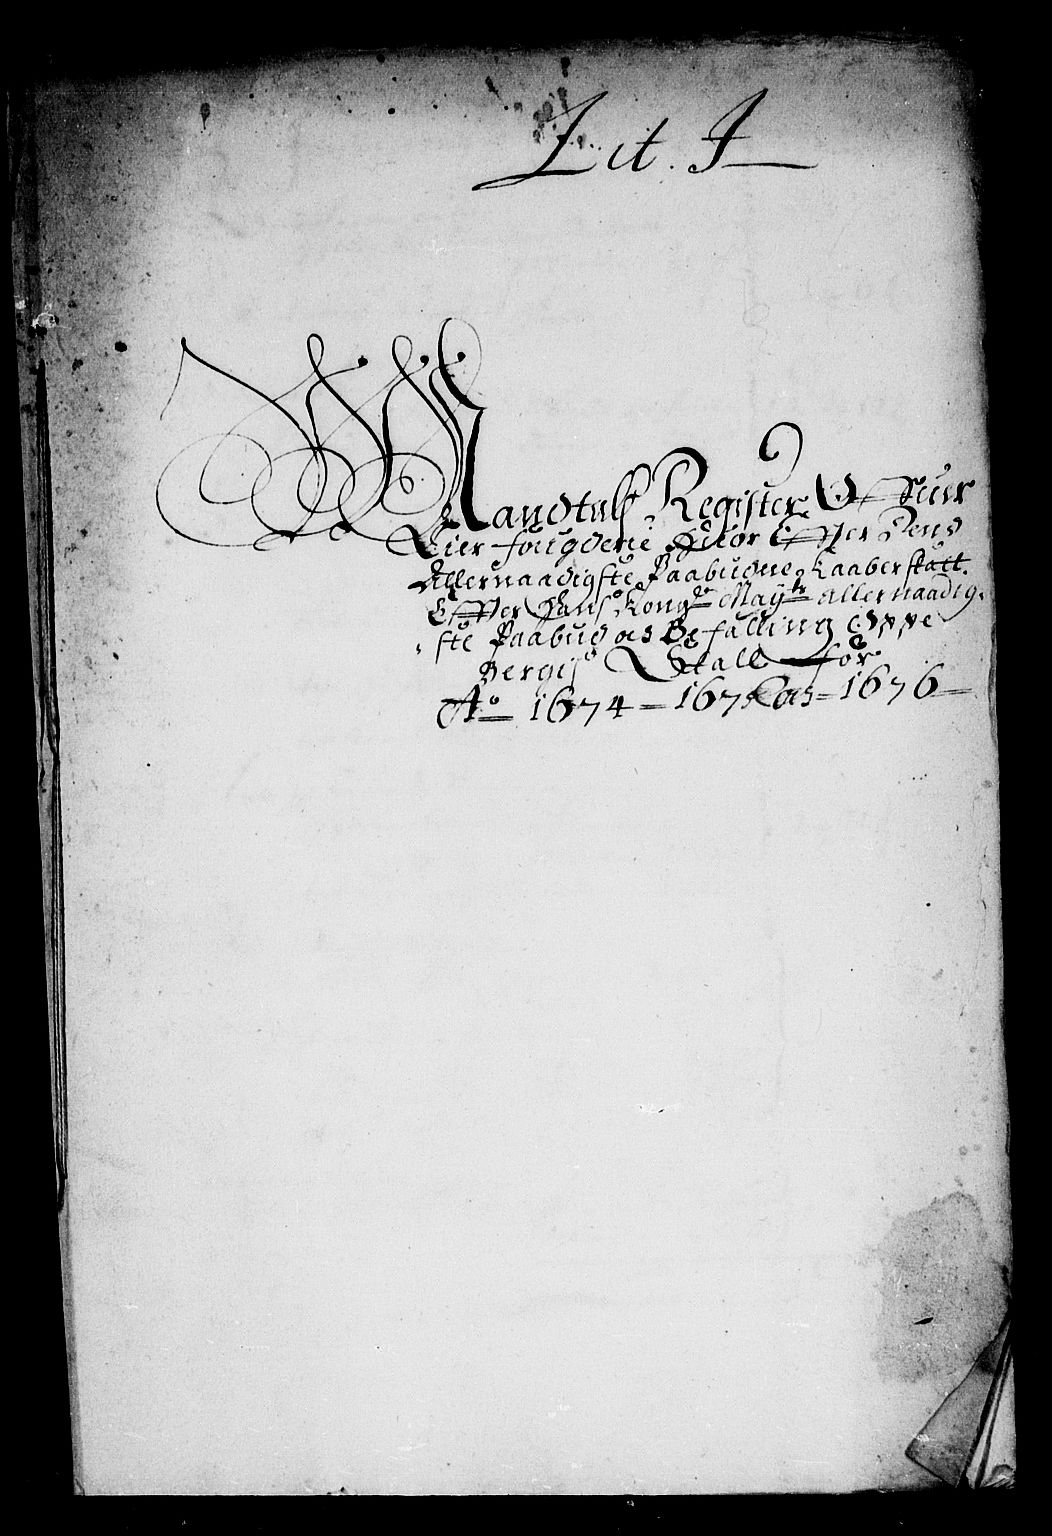 Lit. I
Mandtals Register Offuer
Lier fougderie Huor Effter dend
Allernaadigste Paabudne Kaaberskatt
Effter Hans Kong: May: allernaadig-
ste Paabud og Befalling Oppe
Bergis Skall for
Ao 1674 - 1675 og - 1676